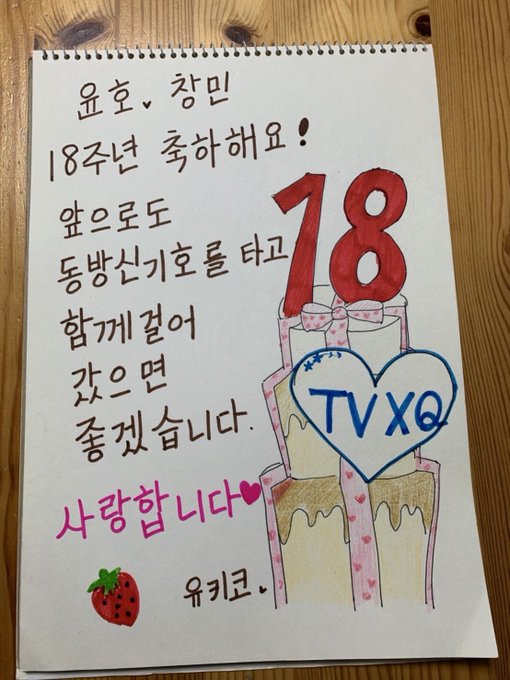 윤호. 창민
18주년 축하해요!
앞으로도
동방신기호를 타고
함께걸어
갔으면
좋겠습니다.
사랑합니다♥
유키코.
18
TVXQ